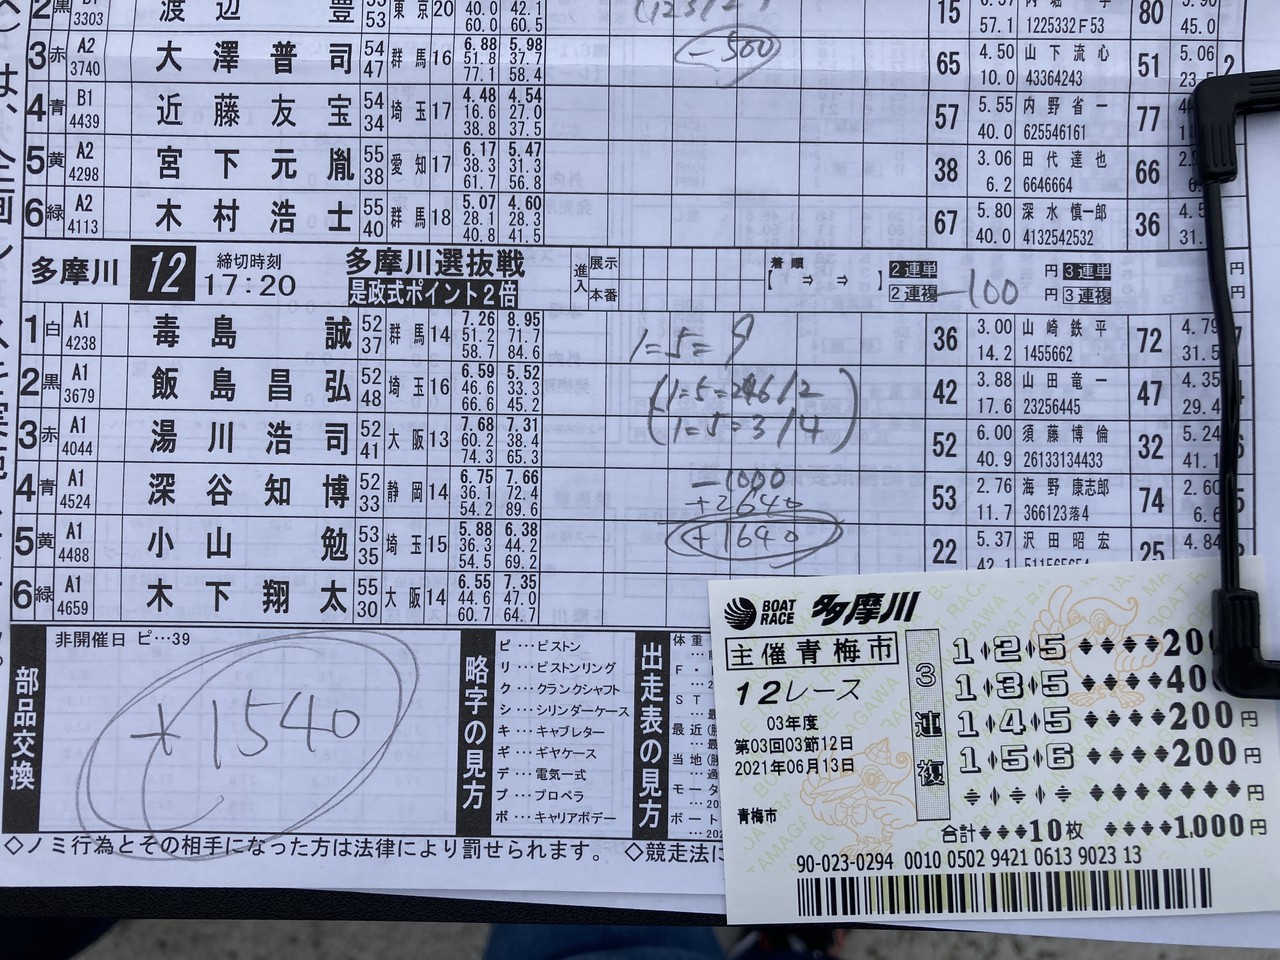 2 黒 3303 渡辺 豊 53 東京 20 40.0 42.1 60.0 60.0 15 57.1 1225332F53 80 45.0
-500
3 赤 A2 3740 大澤普司 54 47 群馬 16 6.88 51.8 77.1 5.98 37.7 58.4 65 4.50 10.0 山下流心 43364243 51 5.06
4 青 B1 4439 近藤友宝 54 34 埼玉 17 4.48 16.6 38.8 4.54 27.0 37.5 57 5.55 40.0 内野省一 625546161 77
5 黄 A2 4298 宮下元胤 55 38 愛知 17 6.17 38.3 61.7 5.47 31.3 56.8 38 3.06 6.2 田代達也 6646664 66
6 緑 A2 4113 木村浩士 55 40 群馬 18 5.07 28.1 40.8 4.60 28.3 41.5 67 5.80 40.0 深水慎一郎 4132542532 36
多摩川 12 締切時刻 17:20 多摩川選抜戦 是政式ポイント2倍 進入 展示 本番 着順 [ ⇒ ⇒ ] 2連単 2連複 -100 円 円 3連単 3連複 円 円
1 白 A1 4238 毒島誠 52 37 群馬 14 7.26 51.2 58.7 8.95 71.7 84.6 36 3.00 14.2 山崎鉄平 1455662 72 4.79 31.5
1=5=9
2 黒 A1 3679 飯島昌弘 52 48 埼玉 16 6.59 46.6 66.6 5.52 33.3 45.2 42 3.88 17.6 山田竜一 23256445 47 4.35 29.4
(1=5=246/2
1=5=3/4)
3 赤 A1 4044 湯川浩司 52 41 大阪 13 7.68 60.2 74.3 7.31 38.4 65.3 52 6.00 40.9 須藤博倫 26133134433 32 5.24 41.1
4 青 A1 4524 深谷知博 52 33 静岡 14 6.75 36.1 54.2 7.66 72.4 89.6 53 2.76 11.7 海野康志郎 366123落4 74 2.60
-1000
+2640
+1640
5 黄 A1 4488 小山勉 53 35 埼玉 15 5.88 36.3 54.5 6.38 44.2 69.2 22 5.37 42.1 沢田昭宏 25 4.84
6 緑 A1 4659 木下翔太 55 30 大阪 14 6.55 44.6 60.7 7.35 47.0 64.7
部品交換
非開催日 ピ…39
+1540
略字の見方
ピ…ピストン
リ…ピストンリング
ク…クランクシャフト
シ…シリンダーケース
キ…キャブレター
ギ…ギヤケース
デ…電気一式
プ…プロペラ
ボ…キャリアボデー
出走表の見方
体重
F・
ST
最近
当地
モータ
ボート
◇ノミ行為とその相手になった方は法律により罰せられます。 ◇競走法に
BOAT RACE 多摩川
主催青梅市
12レース
03年度
第03回03節12日
2021年06月13日
青梅市
3連複
1♦2♦5 ♦♦♦♦200
1♦3♦5 ♦♦♦♦400
1♦4♦5 ♦♦♦♦200円
1♦5♦6 ♦♦♦♦200円
合計♦♦♦10枚 ♦♦♦♦1,000円
90-023-0294 0010 0502 9421 0613 9023 13